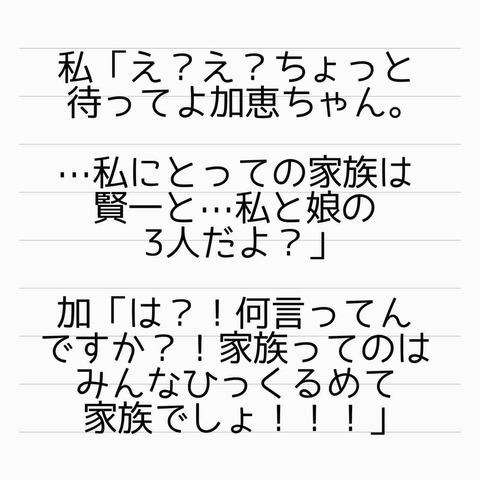 私「え？え？ちょっと
待ってよ加恵ちゃん。
…私にとっての家族は
賢一と…私と娘の
3人だよ？」
加「は？！何言ってん
ですか？！家族ってのは
みんなひっくるめて
家族でしょ！！！」